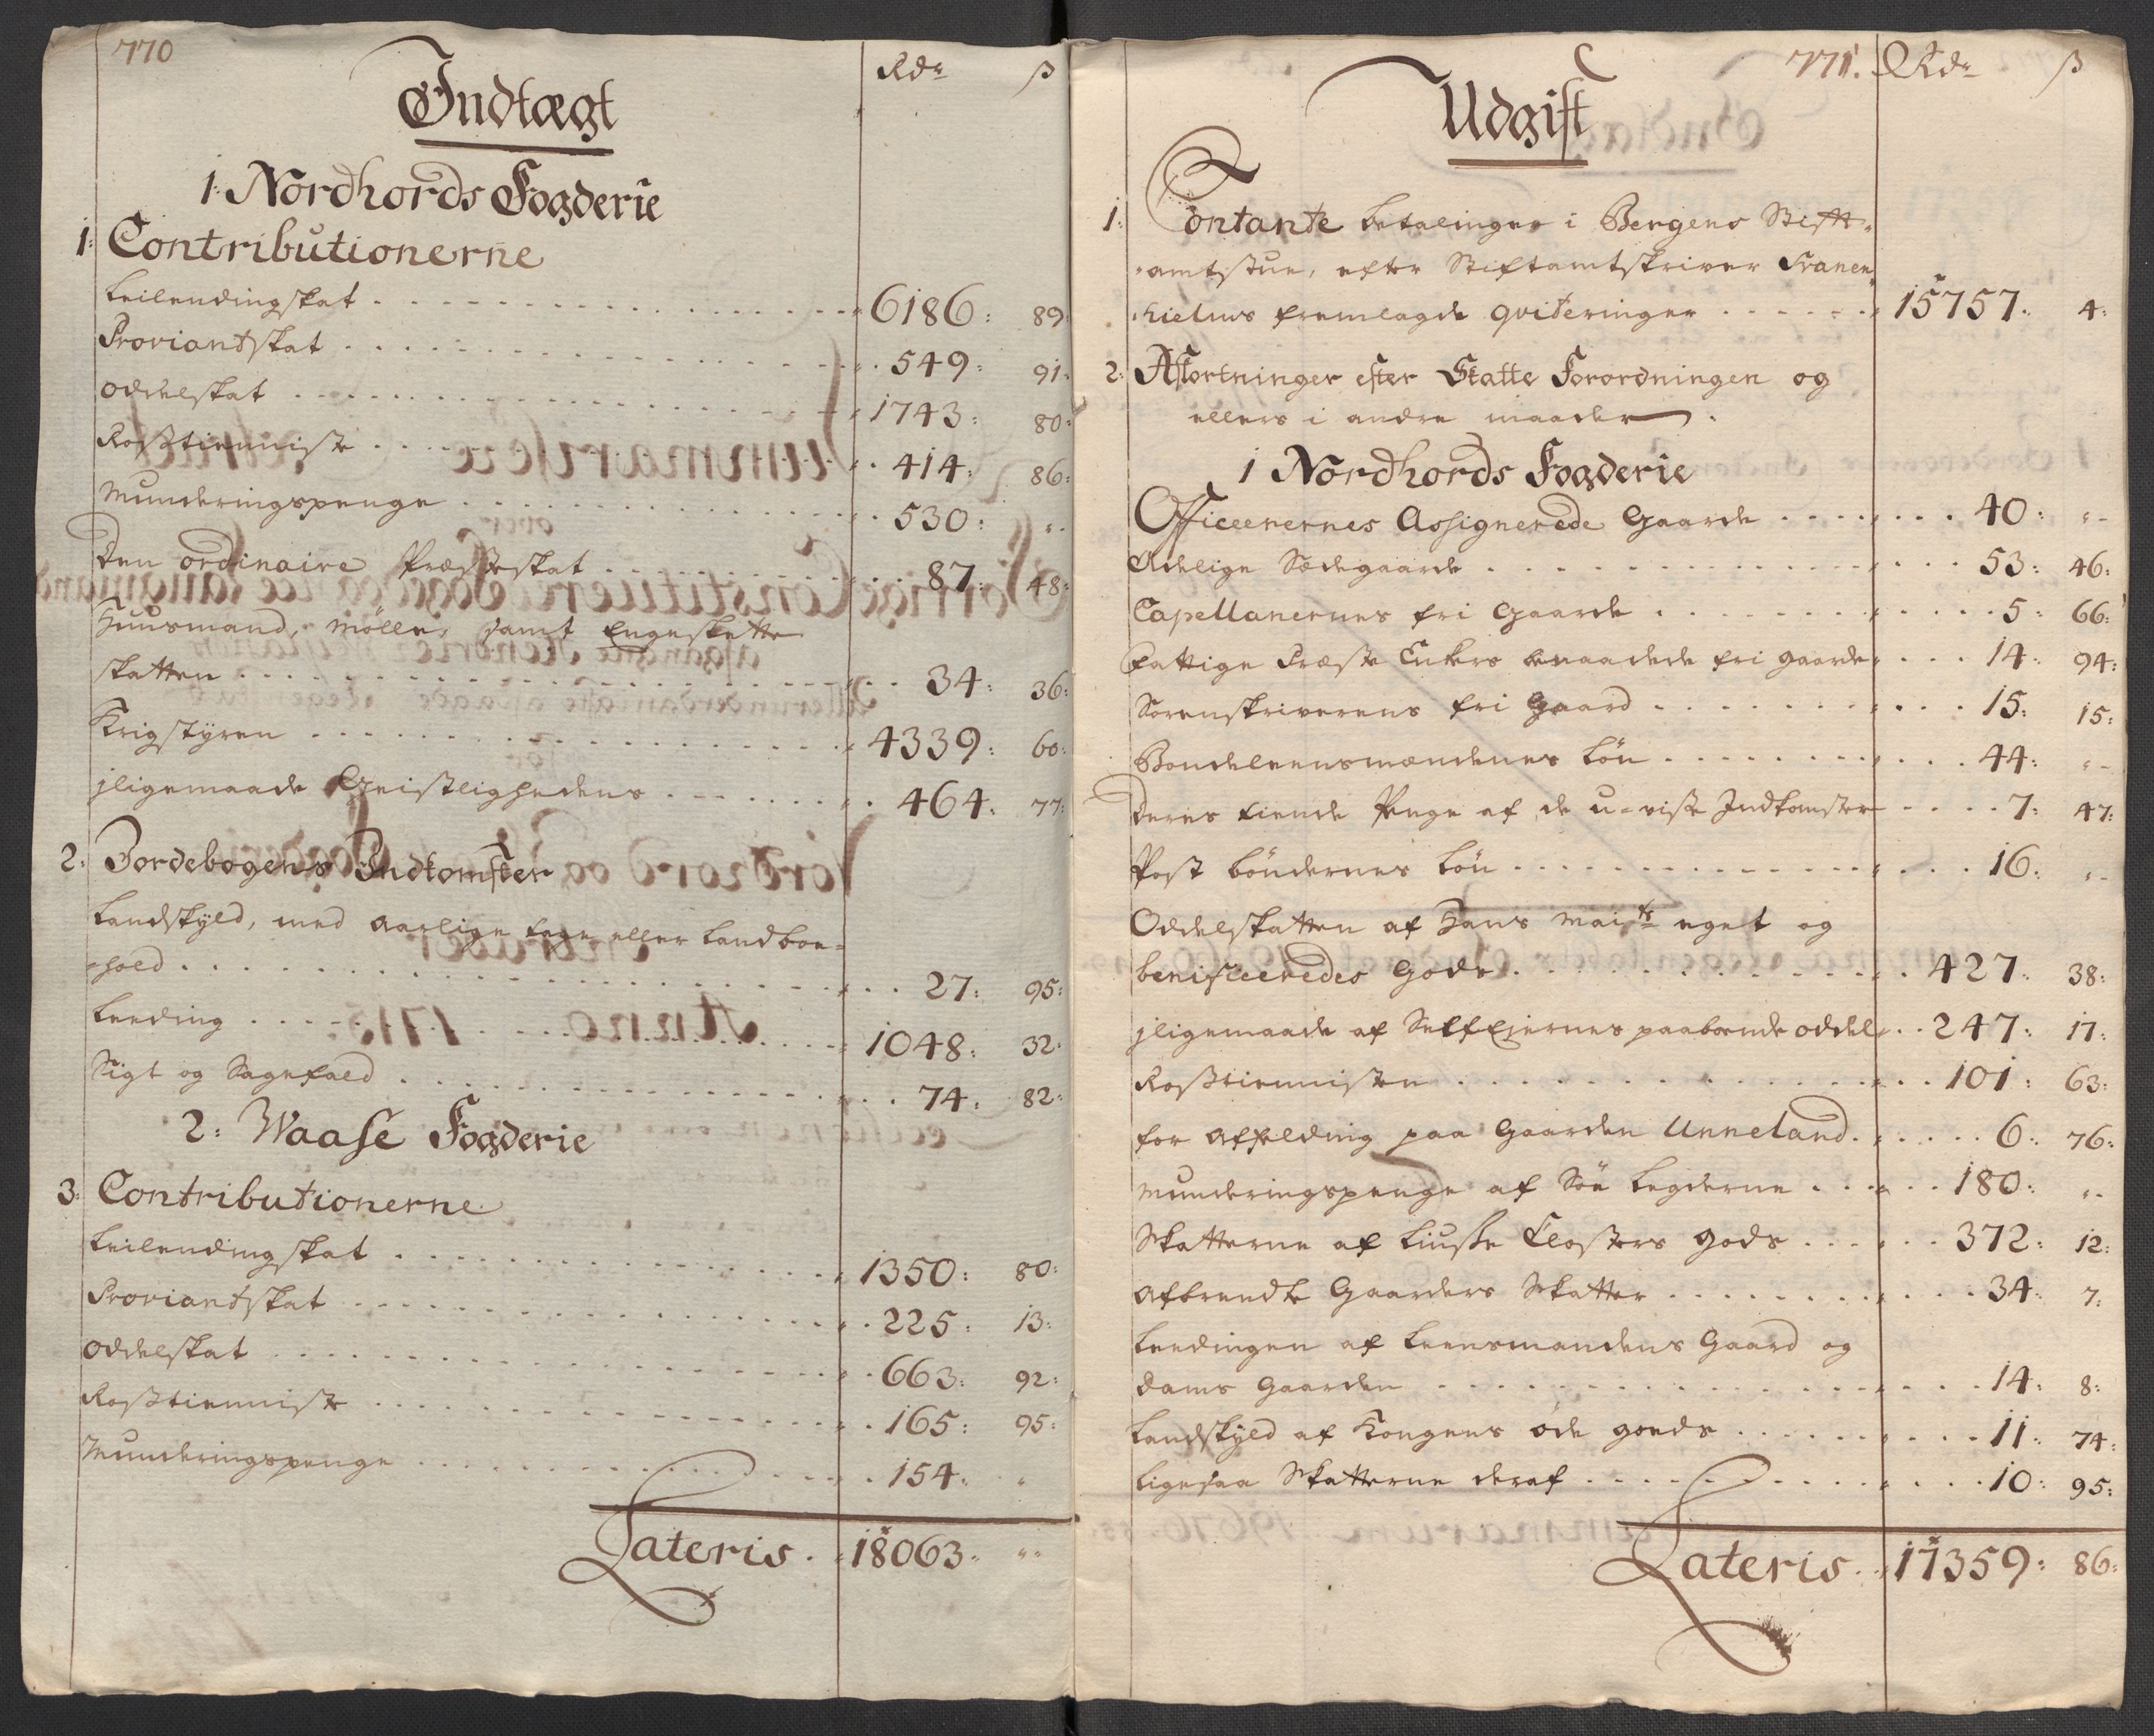 770
Rdr ß
Indtægt
1: Nordhords Fogderie
1: Contributionerne
Leilendingskat . . . 6186: 89:
Proviantskat . . . 549: 91:
Oddelskat . . . 1743: 80:
Roßtienniste . . . 414: 86:
Munderingspenge . . . 530: "
Den ordinaire Præsteskat . . . 87: 48:
Huusmand, Mölle, samt Engeslette
skatten . . . 34: 36:
Krigstyren . . . 4339: 60:
jligemaade Geistlighedens . . . 464: 77:
2: Jordebogens Indkomster
Landskyld, med aarlige leye eller landboe-
-hold . . . 27: 95:
Leeding . . . 1048: 32:
Sigt og Sagefald . . . 74: 82:
2: Waase Fogderie
3: Contributionerne
Leilendingskat . . . 1350: 80:
Proviantskat . . . 225: 13:
Oddelskat . . . 663: 92:
Roßtienniste . . . 165: 95:
Munderingspenge . . . 154: "
Lateris . 18063: "
771. Rdr ß
Udgift
1: Contante betalinger i Bergens Stift-
-amtstue, efter Stiftamtskriver Franen
-hielms fremlagde qviteringer . . . 15757: 4:
2: Afkortninger efter Skatte Forordningen og
ellers i andre maader .
1 Nordhords Fogderie
Officerernes Assignerede Gaarde . . . 40: "
Adelige Sædegaarde . . . 53: 46:
Capellanernes fri Gaarde . . . 5: 66:
Fattige Præste Enkers benaadede fri gaarde . . . 14: 94:
Sorenskriverens fri Gaard . . . 15: 15:
Bondelensmændenes Lön . . . 44: "
Deres tiende Penge af de u-visse Indkomster . . . 7: 47:
Post böndernes Lön . . . 16: "
Oddelskatten af Hans Maits eget og
beneficeredes Gods . . . 427: 38:
jligemaade af Selfejernes paaboende oddel . . 247: 17:
Roßtiennisten . . . 101: 63:
for affelding paa Gaarden Unneland . . . 6: 76:
Munderingspenge af Söe Legderne . . . 180: "
Skatterne af Liusse Closters gods . . . 372: 12:
Afbrendte Gaarders Skatter . . . 34: 7:
Leedingen af Leensmandens Gaard og
Dams Gaarden . . . 14: 8:
Landskyld af Kongens öde goeds . . . 11: 74:
Ligesaa Skatterne deraf . . . 10: 95:
Lateris . 17359: 86: